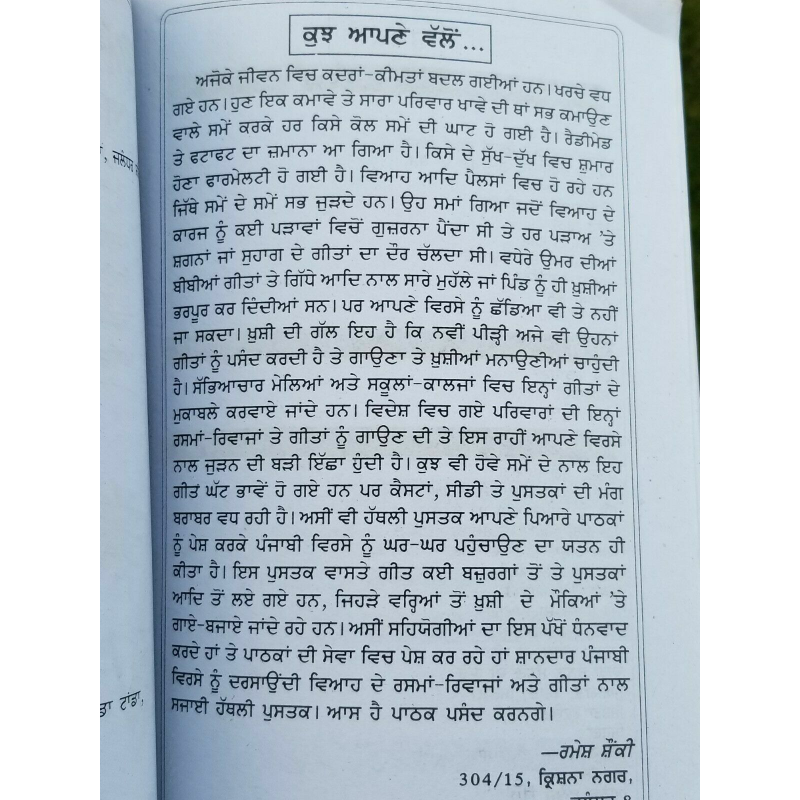 ਕੁਝ ਆਪਣੇ ਵੱਲੋਂ...
ਅਜੋਕੇ ਜੀਵਨ ਵਿਚ ਕਦਰਾਂ-ਕੀਮਤਾਂ ਬਦਲ ਗਈਆਂ ਹਨ। ਖਰਚੇ ਵਧ
ਗਏ ਹਨ। ਹੁਣ ਇਕ ਕਮਾਵੇ ਤੇ ਸਾਰਾ ਪਰਿਵਾਰ ਖਾਵੇ ਦੀ ਥਾਂ ਸਭ ਕਮਾਉਣ
ਵਾਲੇ ਸਮੇਂ ਕਰਕੇ ਹਰ ਕਿਸੇ ਕੋਲ ਸਮੇਂ ਦੀ ਘਾਟ ਹੋ ਗਈ ਹੈ। ਰੈਡੀਮੇਡ
ਤੇ ਫਟਾਫਟ ਦਾ ਜ਼ਮਾਨਾ ਆ ਗਿਆ ਹੈ। ਕਿਸੇ ਦੇ ਸੁੱਖ-ਦੁੱਖ ਵਿਚ ਸ਼ੁਮਾਰ
ਹੋਣਾ ਫਾਰਮੇਲਟੀ ਹੋ ਗਈ ਹੈ। ਵਿਆਹ ਆਦਿ ਪੈਲਸਾਂ ਵਿਚ ਹੋ ਰਹੇ ਹਨ
ਜਿੱਥੇ ਸਮੇਂ ਦੇ ਸਮੇਂ ਸਭ ਜੁੜਦੇ ਹਨ। ਉਹ ਸਮਾਂ ਗਿਆ ਜਦੋਂ ਵਿਆਹ ਦੇ
ਕਾਰਜ ਨੂੰ ਕਈ ਪੜਾਵਾਂ ਵਿਚੋਂ ਗੁਜ਼ਰਨਾ ਪੈਂਦਾ ਸੀ ਤੇ ਹਰ ਪੜਾਅ 'ਤੇ
ਸ਼ਗਨਾਂ ਜਾਂ ਸੁਹਾਗ ਦੇ ਗੀਤਾਂ ਦਾ ਦੌਰ ਚੱਲਦਾ ਸੀ। ਵਧੇਰੇ ਉਮਰ ਦੀਆਂ
ਬੀਬੀਆਂ ਗੀਤਾਂ ਤੇ ਗਿੱਧੇ ਆਦਿ ਨਾਲ ਸਾਰੇ ਮੁਹੱਲੇ ਜਾਂ ਪਿੰਡ ਨੂੰ ਹੀ ਖ਼ੁਸ਼ੀਆਂ
ਭਰਪੂਰ ਕਰ ਦਿੰਦੀਆਂ ਸਨ। ਪਰ ਆਪਣੇ ਵਿਰਸੇ ਨੂੰ ਛੱਡਿਆ ਵੀ ਤੇ ਨਹੀਂ
ਜਾ ਸਕਦਾ। ਖ਼ੁਸ਼ੀ ਦੀ ਗੱਲ ਇਹ ਹੈ ਕਿ ਨਵੀਂ ਪੀੜ੍ਹੀ ਅਜੇ ਵੀ ਉਹਨਾਂ
ਗੀਤਾਂ ਨੂੰ ਪਸੰਦ ਕਰਦੀ ਹੈ ਤੇ ਗਾਉਣਾ ਤੇ ਖ਼ੁਸ਼ੀਆਂ ਮਨਾਉਣੀਆਂ ਚਾਹੁੰਦੀ
ਹੈ। ਸੱਭਿਆਚਾਰ ਮੇਲਿਆਂ ਅਤੇ ਸਕੂਲਾਂ-ਕਾਲਜਾਂ ਵਿਚ ਇਨ੍ਹਾਂ ਗੀਤਾਂ ਦੇ
ਮੁਕਾਬਲੇ ਕਰਵਾਏ ਜਾਂਦੇ ਹਨ। ਵਿਦੇਸ਼ ਵਿਚ ਗਏ ਪਰਿਵਾਰਾਂ ਦੀ ਇਨ੍ਹਾਂ
ਰਸਮਾਂ-ਰਿਵਾਜਾਂ ਤੇ ਗੀਤਾਂ ਨੂੰ ਗਾਉਣ ਦੀ ਤੇ ਇਸ ਰਾਹੀਂ ਆਪਣੇ ਵਿਰਸੇ
ਨਾਲ ਜੁੜਨ ਦੀ ਬੜੀ ਇੱਛਾ ਹੁੰਦੀ ਹੈ। ਕੁਝ ਵੀ ਹੋਵੇ ਸਮੇਂ ਦੇ ਨਾਲ ਇਹ
ਗੀਤ ਘੱਟ ਭਾਵੇਂ ਹੋ ਗਏ ਹਨ ਪਰ ਕੈਸਟਾਂ, ਸੀਡੀ ਤੇ ਪੁਸਤਕਾਂ ਦੀ ਮੰਗ
ਬਰਾਬਰ ਵਧ ਰਹੀ ਹੈ। ਅਸੀਂ ਵੀ ਹੱਥਲੀ ਪੁਸਤਕ ਆਪਣੇ ਪਿਆਰੇ ਪਾਠਕਾਂ
ਨੂੰ ਪੇਸ਼ ਕਰਕੇ ਪੰਜਾਬੀ ਵਿਰਸੇ ਨੂੰ ਘਰ-ਘਰ ਪਹੁੰਚਾਉਣ ਦਾ ਯਤਨ ਹੀ
ਕੀਤਾ ਹੈ। ਇਸ ਪੁਸਤਕ ਵਾਸਤੇ ਗੀਤ ਕਈ ਬਜ਼ੁਰਗਾਂ ਤੋਂ ਤੇ ਪੁਸਤਕਾਂ
ਆਦਿ ਤੋਂ ਲਏ ਗਏ ਹਨ, ਜਿਹੜੇ ਵਰ੍ਹਿਆਂ ਤੋਂ ਖ਼ੁਸ਼ੀ ਦੇ ਮੌਕਿਆਂ 'ਤੇ
ਗਾਏ-ਬਜਾਏ ਜਾਂਦੇ ਰਹੇ ਹਨ। ਅਸੀਂ ਸਹਿਯੋਗੀਆਂ ਦਾ ਇਸ ਪੱਖੋਂ ਧੰਨਵਾਦ
ਕਰਦੇ ਹਾਂ ਤੇ ਪਾਠਕਾਂ ਦੀ ਸੇਵਾ ਵਿਚ ਪੇਸ਼ ਕਰ ਰਹੇ ਹਾਂ ਸ਼ਾਨਦਾਰ ਪੰਜਾਬੀ
ਵਿਰਸੇ ਨੂੰ ਦਰਸਾਉਂਦੀ ਵਿਆਹ ਦੇ ਰਸਮਾਂ-ਰਿਵਾਜਾਂ ਅਤੇ ਗੀਤਾਂ ਨਾਲ
ਸਜਾਈ ਹੱਥਲੀ ਪੁਸਤਕ। ਆਸ ਹੈ ਪਾਠਕ ਪਸੰਦ ਕਰਨਗੇ।
—ਰਮੇਸ਼ ਸ਼ੌਂਕੀ
304/15, ਕ੍ਰਿਸ਼ਨਾ ਨਗਰ,
ਟਾਂਡਾ,